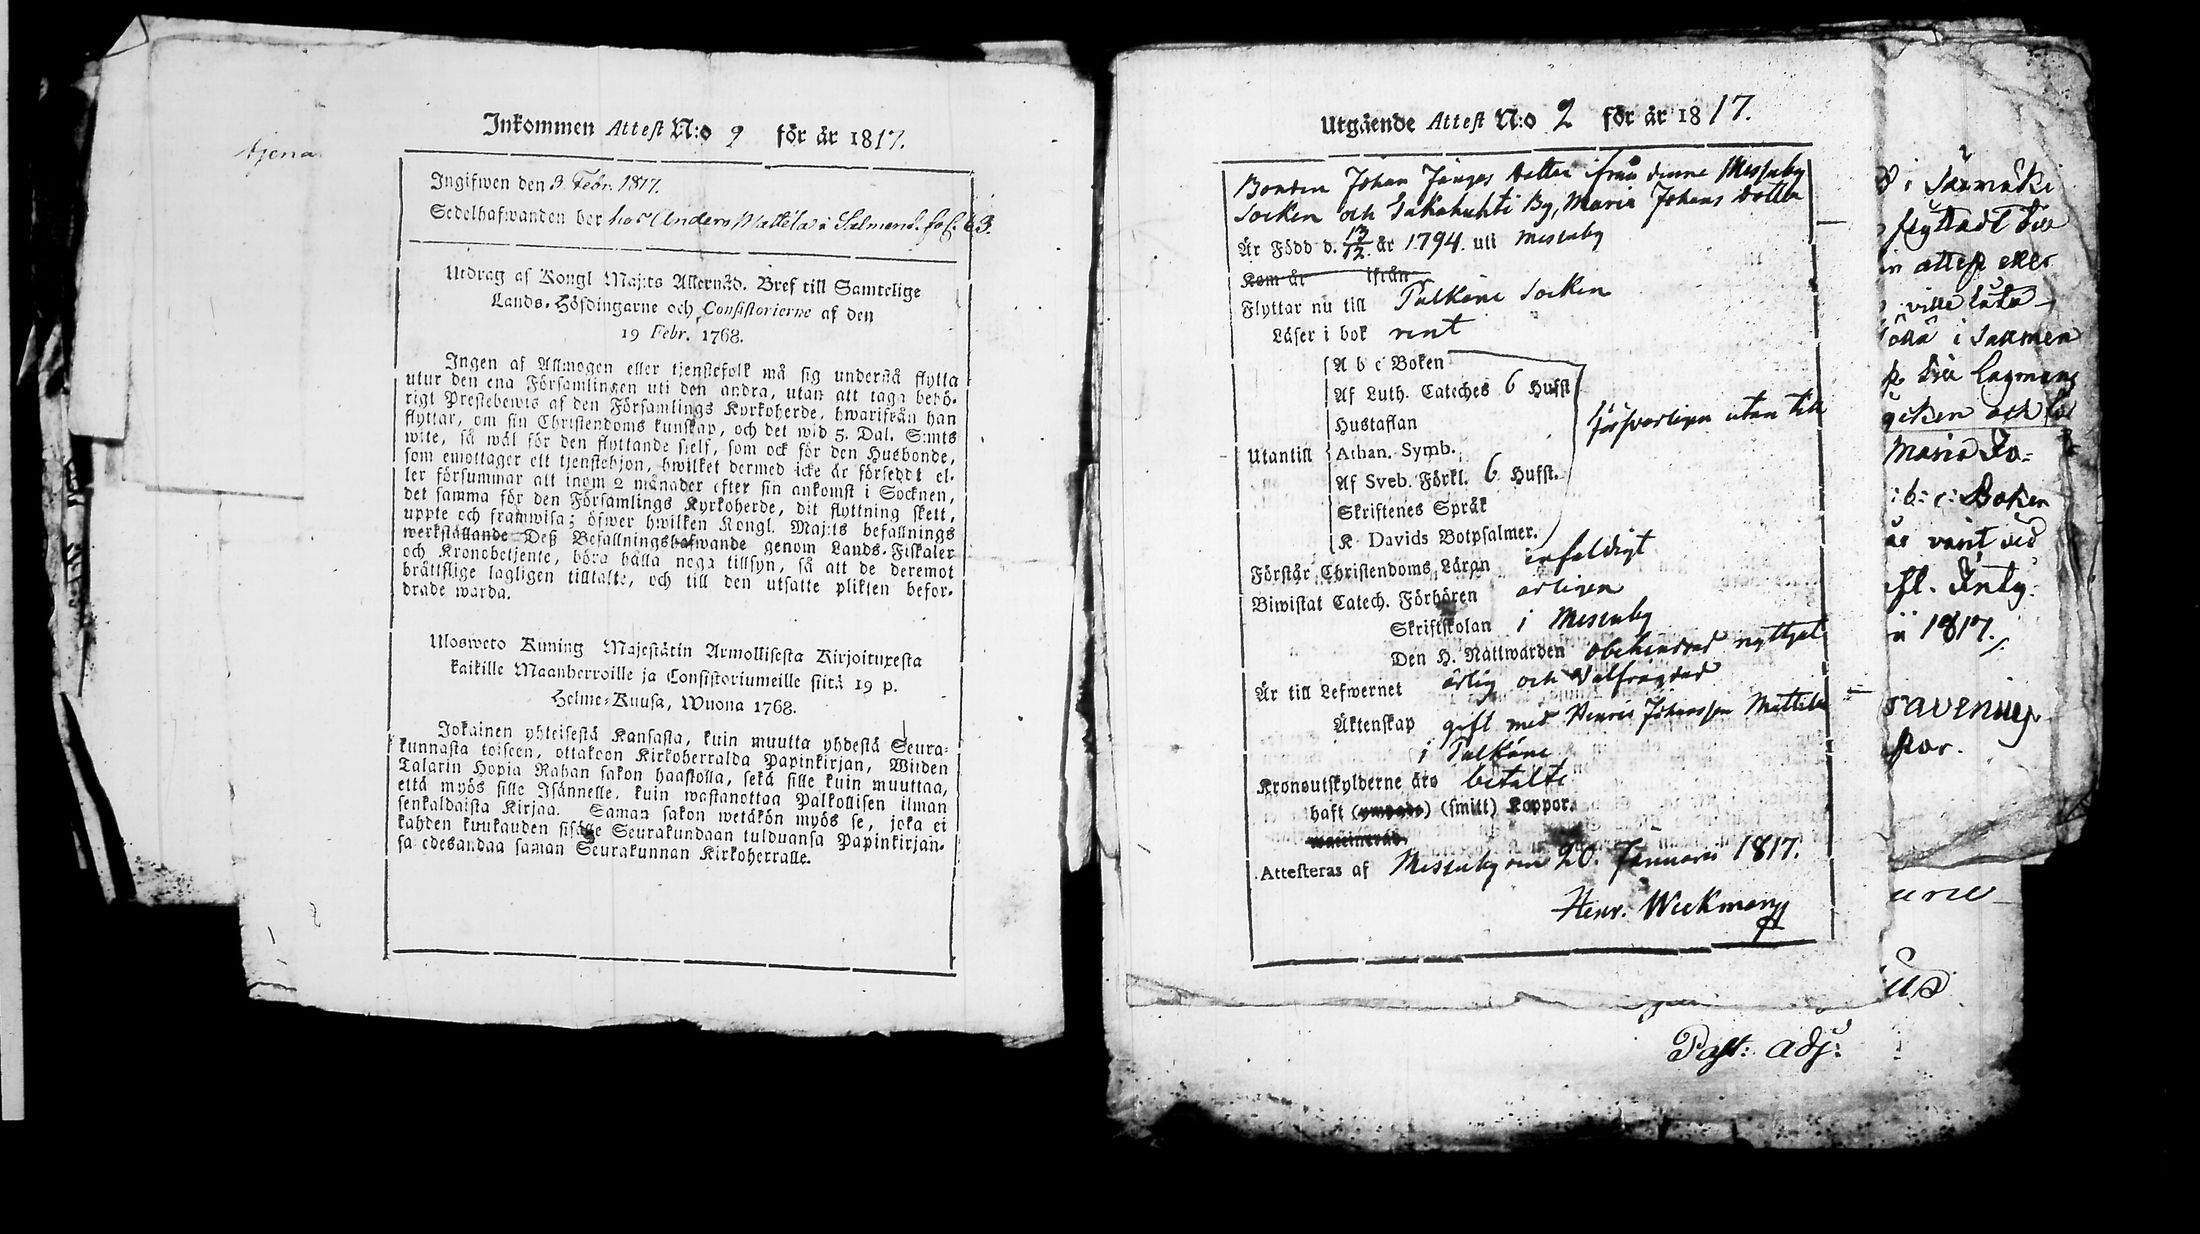 tjena
Inkommen Attest N:o 9 för år 1817.
Ingifwen den 9. Febr. 1817.
Sedelhafwanden bor hos Anders Mattela i Salmens. fol: 63.
Utdrag af Kongl Maj:ts Allernåd. Bref till Samtelige
Lands-Höfdingarne och Consistorierne af den
19 Febr. 1768.
Ingen af Allmogen eller tjenstefolk må sig understå flytta
utur den ena Församlingen uti den andra, utan att taga behö-
rigt Prestebewis af den Församlings Kyrkoherde, hwarifrån han
flyttar, om sin Christendoms kunskap, och det wid 5. Dal. S:mts
wite, så wäl för den flyttande sjelf, som ock för den Husbonde,
som emottager ett tjenstehjon, hwilket dermed icke är försedt el-
ler försummar att inom 2 månader efter sin ankomst i Socknen,
det samma för den Församlings Kyrkoherde, dit flyttning skett,
uppte och framwisa; öfwer hwilken Kongl. Maj:ts befallnings
werkställande Deß Befallningshafwande genom Lands-Fiskaler
och Kronobetjente, böra hålla noga tillsyn, så att de deremot
bråttslige lagligen tilltalte, och till den utsatte plikten befor-
drade warda.
Ulosweto Kuning Majestätin Armollisesta Kirjoituxesta
kaikille Maanherroille ja Consistoriumeille siitä 19 p.
Helme-Kuusa, Wuona 1768.
Jokainen yhteisestä Kansasta, kuin muutta yhdestä Seura-
kunnasta toiseen, ottakoon Kirkoherralda Papinkirjan, Wiiden
Talarin Hopia Rahan sakon haastolla, sekä sille kuin muuttaa,
että myös sille Isännelle, kuin wastanottaa Palkollisen ilman
senkaldaista Kirjaa. Saman sakon wetäkön myös se, joka ei
kahden kuukauden sisälle Seurakundaan tulduansa Papinkirjan-
sa edesandaa saman Seurakunnan Kirkoherralle.
Utgående Attest N:o 2 för år 1817.
Bonden Johan Jöuges dotter från denne Messuby
Socken och Takahuhti By, Maria Johans dotter
Är Född d. 13/12 år 1794. uti Messuby
Kom år ifrån
Flyttar nu till Palkäne Socken
Läser i bok rent
Utantill
A b c Boken
Af Luth. Cateches 6 Hufst
Hustaflan
Athan. Symb.
Af Sveb. Förkl. 6 Hufst.
Skriftenes Språk
K. Davids Botpsalmer.
försvarligen utan till
Förstår Christendoms Läran enfaldigt
Biwistat Catech. Förhören årligen
Skriftskolan i Messuby
Den H. Nattwarden obehindrad nyttjat
Är till Lefwernet ärlig och Välfrägdad
Äktenskap gift med Henric Johansson Mattila
i Palkäne
Kronoutskylderne äro betalte
haft (smitt) Koppor.
Attesteras af Messuby den 20. Januarii 1817.
Henr. Wickman
Past: adj:
i
flyttadt till
attest eller
ville
i Salmen
Till Lagmans
och
Maria Jo-
:b: c: Boken
varit vid
1817.